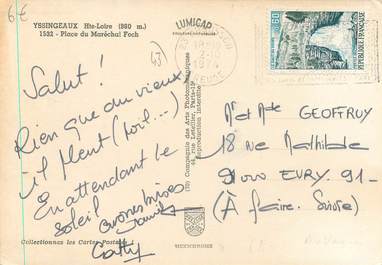 6€
YSSINGEAUX Hte-Loire (860 m.)
1532 - Place du Maréchal Foch
(43)
Salut !
Rien que du vieux
il pleut (poit...)
En attendant le
soleil
Cathy
Collectionnez les Cartes Postales !
LUMICAP
(70) Compagnie des Arts Photomécaniques
44, rue Letellier, Paris-15
Reproduction interdite
MEXICHROME
0,60
RÉPUBLIQUE FRANÇAISE
Mr et Mme GEOFFROY
18 rue Mathilde
91000 EVRY. 91-
(À faire. Suivre)